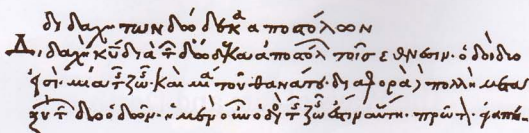 διδαχὴ τῶν δώδεκα ἀποστόλων
Διδαχὴ κυ διὰ τ δώδεκα ἀποστολ τοῖς ἔθνεσιν. ὁδοὶ δύο
εἰσί· μία τ ζω καὶ μία τοῦ θανάτου· διαφορὰ πολλὴ μετα
ξὺ τ δύο ὁδῶν· ἡ μὲν οὖν ὁδὸς τ ζω ἐστιν αὕτη· πρῶτ